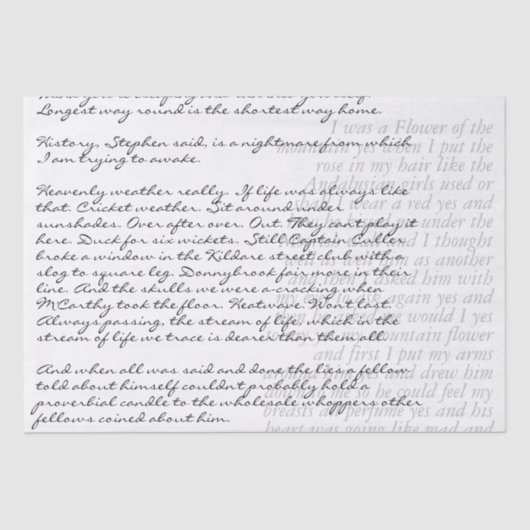 Longest way round is the shortest way home.
History, Stephen said, is a nightmare from which
I am trying to awake.
Heavenly weather really. If life was always like
that. Cricket weather. Sit around under
sunshades. Over after over. Out. They cant play it
here. Duck for six wickets. Still Captain Culler
broke a window in the Kildare street club with a
slog to square leg. Donnybrook fair more in their
line. And the skulls we were acracking when
M'Carthy took the floor. Heatwave. Wont last.
Always passing, the stream of life, which in the
stream of life we trace is dearer than them all.
And when all was said and done the lies a fellow
told about himself couldnt probably hold a
proverbial candle to the wholesale whoppers other
fellows coined about him.
I was a Flower of the
mountain yes when I put the
rose in my hair like the
Andalusian girls used or
shall I wear a red yes and
how he kissed me under the
wall and I thought
well as well him as another
and then I asked him with
my eyes to ask again yes and
then he asked me would I yes
to say yes my mountain flower
and first I put my arms
around him yes and drew him
down to me so he could feel my
breasts all perfume yes and his
heart was going like mad and